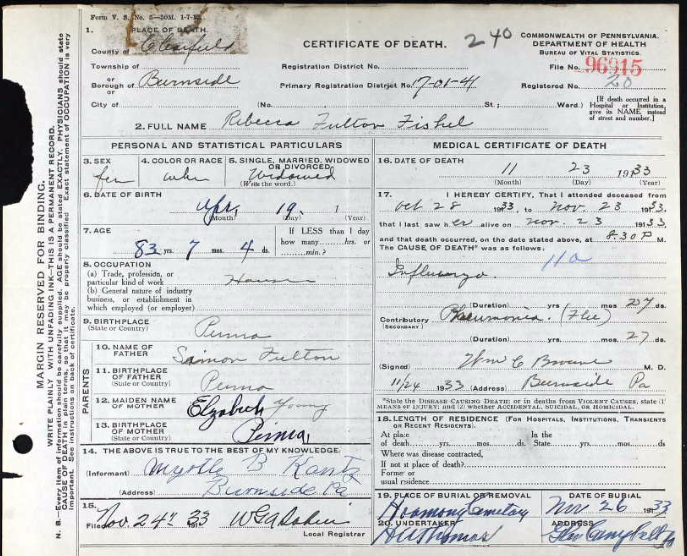 Form V. S. No. 5—50M. 1-7-1
1. PLACE OF DEATH.
County of Clearfield
Township of
or
Borough of Burnside
or
City of
CERTIFICATE OF DEATH.
240
Registration District No.
Primary Registration District No. 17-01-41
(No. St.; Ward.)
COMMONWEALTH OF PENNSYLVANIA.
DEPARTMENT OF HEALTH
BUREAU OF VITAL STATISTICS.
File No. 96915
Registered No. 20
[If death occurred in a Hospital or Institution, give its NAME instead of street and number.]
2. FULL NAME Rebecca Fulton Fishel
PERSONAL AND STATISTICAL PARTICULARS
3. SEX
fem
4. COLOR OR RACE
whi
5. SINGLE, MARRIED, WIDOWED OR DIVORCED
Widowed
(Write the word.)
6. DATE OF BIRTH
Apr. 19, 1
(Month) (Day) (Year)
7. AGE
83 yrs. 7 mos. 4 ds.
If LESS than 1 day how many....hrs. or ....min.?
8. OCCUPATION
(a) Trade, profession, or particular kind of work
(b) General nature of industry business, or establishment in which employed (or employer)
9. BIRTHPLACE
(State or Country) Penna
PARENTS
10. NAME OF FATHER Saimon Fulton
11. BIRTHPLACE OF FATHER (State or Country) Penna
12. MAIDEN NAME OF MOTHER Elzabeth Young
13. BIRTHPLACE OF MOTHER (State or Country) Penna,
14. THE ABOVE IS TRUE TO THE BEST OF MY KNOWLEDGE.
(Informant) Myrtle B Kantz
(Address) Burnside Pa
15.
Filed Nov 24th 33
Local Registrar
MEDICAL CERTIFICATE OF DEATH
16. DATE OF DEATH
11 23 1933
(Month) (Day) (Year)
17. I HEREBY CERTIFY, That I attended deceased from
Oct 28 1933, to Nov. 23 1933,
that I last saw her alive on Nov. 23 1933
and that death occurred, on the date stated above, at 8.30 P M.
The CAUSE OF DEATH* was as follows:
11a
Influenza
(Duration) yrs. mos. 27 ds.
Contributory Pneumonia. (Flu)
(SECONDARY)
(Duration) yrs. mos. 27 ds.
(Signed) Wm C Browne M. D.
11/24 1933 (Address) Burnside Pa
*State the DISEASE CAUSING DEATH; or in deaths from VIOLENT CAUSES, state (1) MEANS OF INJURY; and (2) whether ACCIDENTAL, SUICIDAL, or HOMICIDAL.
18. LENGTH OF RESIDENCE (FOR HOSPITALS, INSTITUTIONS, TRANSIENTS OR RECENT RESIDENTS).
At place of death....yrs. mos. ds. In the State yrs. mos. ds.
Where was disease contracted, if not at place of death?
Former or usual residence
19. PLACE OF BURIAL OR REMOVAL
Harmony Cemetery
DATE OF BURIAL
Nov. 26 1933
20. UNDERTAKER
ADDRESS
Glen Campbell Pa
MARGIN RESERVED FOR BINDING.
WRITE PLAINLY WITH UNFADING INK—THIS IS A PERMANENT RECORD.
N. B.—Every item of information should be carefully supplied. AGE should be stated EXACTLY. PHYSICIANS should state CAUSE OF DEATH in plain terms, so that it may be properly classified. Exact statement of OCCUPATION is very important. See instructions on back of certificate.